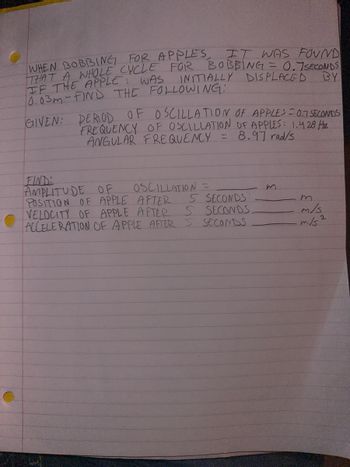 WHEN BOBBING FOR APPLES, IT WAS FOUND
THAT A WHOLE CYCLE FOR BOBBING = 0.7SECONDS
IF THE APPLE: WAS INITIALLY DISPLACED BY
0.03m- FIND THE FOLLOWING:
GIVEN: PERIOD OF OSCILLATION OF APPLES = 0.7 SECONDS
FREQUENCY OF OSCILLATION OF APPLES: 1.428 Hz
ANGULAR FREQUENCY = 8.97 rad/s
FIND:
AMPLITUDE OF OSCILLATION = ____ m
POSITION OF APPLE AFTER 5 SECONDS ____ m
VELOCITY OF APPLE AFTER 5 SECONDS ____ m/s
ACCELERATION OF APPLE AFTER 5 SECONDS ____ m/s²